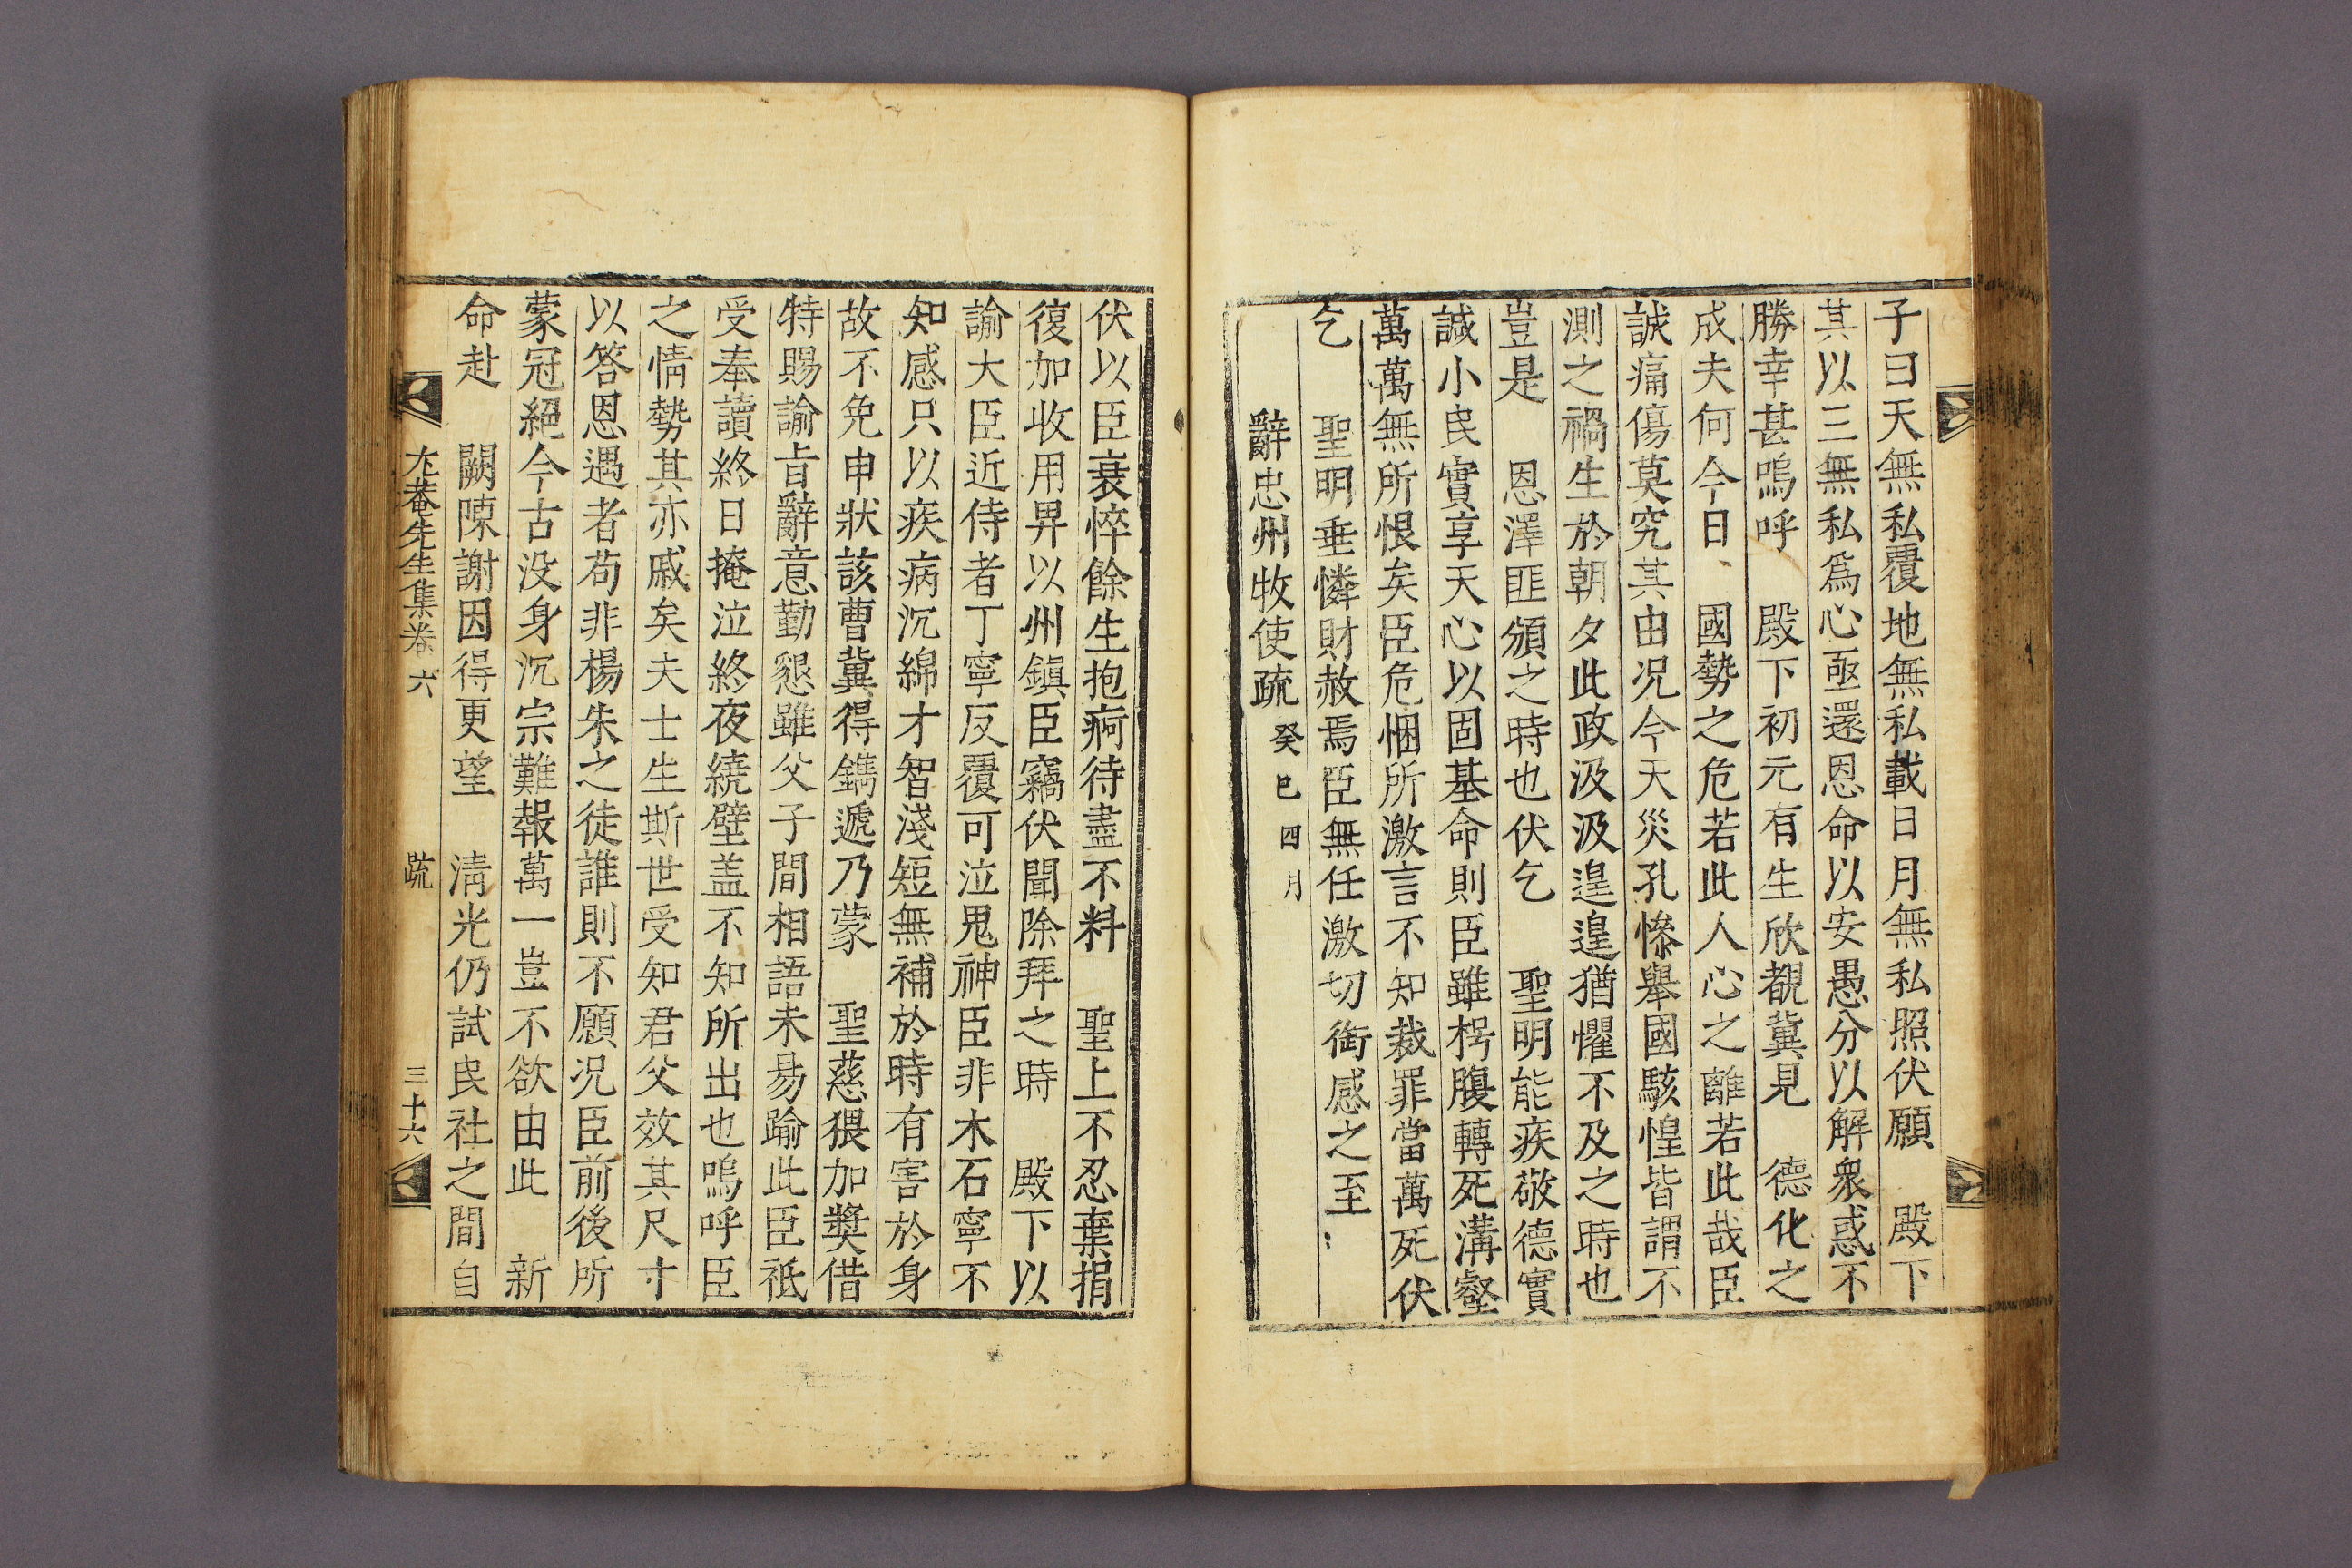 子曰天無私覆地無私載日月無私照伏願　殿下
其以三無私爲心亟還恩命以安愚分以解衆惑不
勝幸甚嗚呼　殿下初元有生欣覩冀見　德化之
成夫何今日　國勢之危若此人心之離若此哉臣
誠痛傷莫究其由况今天災孔慘舉國駭惶皆謂不
測之禍生於朝夕此政汲汲遑遑猶懼不及之時也
豈是　恩澤匪頒之時也伏乞　聖明能疾敬德實
諴小民實享天心以固基命則臣雖枵腹轉死溝壑
萬萬無所恨矣臣危悃所激言不知裁罪當萬死伏
乞　聖明垂憐財赦焉臣無任激切銜感之至
辭忠州牧使疏 癸巳四月
伏以臣衰悴餘生抱痾待盡不料　聖上不忍棄捐
復加收用畀以州鎭臣竊伏聞除拜之時　殿下以
諭大臣近侍者丁寧反覆可泣鬼神臣非木石寧不
知感只以疾病沉綿才智淺短無補於時有害於身
故不免申狀該曹冀得鐫遞乃蒙　聖慈猥加奬借
特賜諭旨辭意勤懇雖父子間相語未易踰此臣祗
受奉讀終日掩泣終夜繞壁盖不知所出也嗚呼臣
之情勢其亦戚矣夫士生斯世受知君父效其尺寸
以答恩遇者苟非楊朱之徒誰則不願况臣前後所
蒙冠絕今古没身沉宗難報萬一豈不欲由此　新
命赴　闕陳謝因得更望　淸光仍試民社之間自
尤菴先生集卷六　疏　三十六